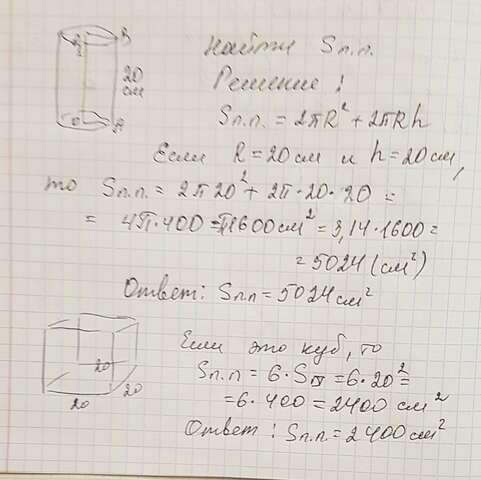 Найти Sп.п.
Решение:
B
B
20
см
O
A
Sп.п. = 2πR² + 2πRh
Если R = 20 см и h = 20 см,
то Sп.п. = 2π20² + 2π·20·20 =
= 4π·400 = π1600 см² = 3,14·1600 =
= 5024 (см²)
Ответ: Sп.п = 5024 см²
Если это куб, то
Sп.п = 6·S = 6·20² =
= 6·400 = 2400 см²
Ответ: Sп.п. = 2400 см²
20
20
20